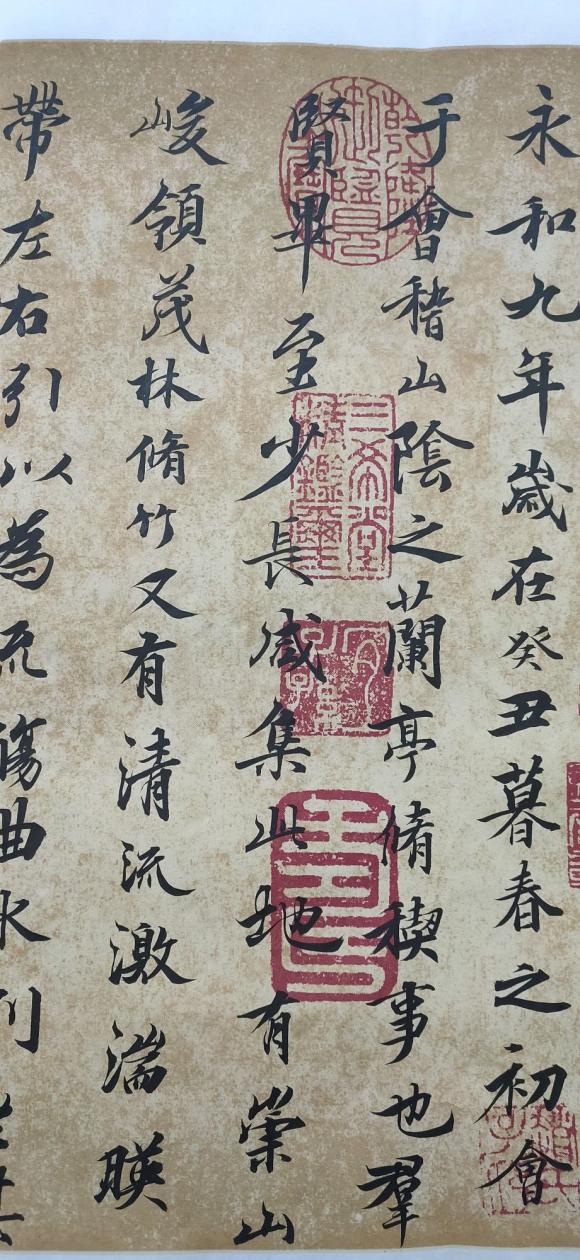 永和九年歲在癸丑暮春之初會
于會稽山陰之蘭亭脩稧事也羣
賢畢至少長咸集此地有崇山
峻領茂林脩竹又有清流激湍暎
帶左右引以為流觴曲水列
三希堂精鑑璽
宜子孫